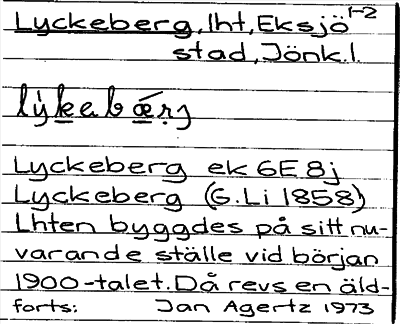 Lyckeberg, lht, Eksjö 1-2
stad, Jönk.l.
lỳkabǽrj
Lyckeberg ek 6E8j
Lyckeberg (G.Li 1858)
Lhten byggdes på sitt nu-
varande ställe vid början
1900-talet. Då revs en äld-
forts: Jan Agertz 1973